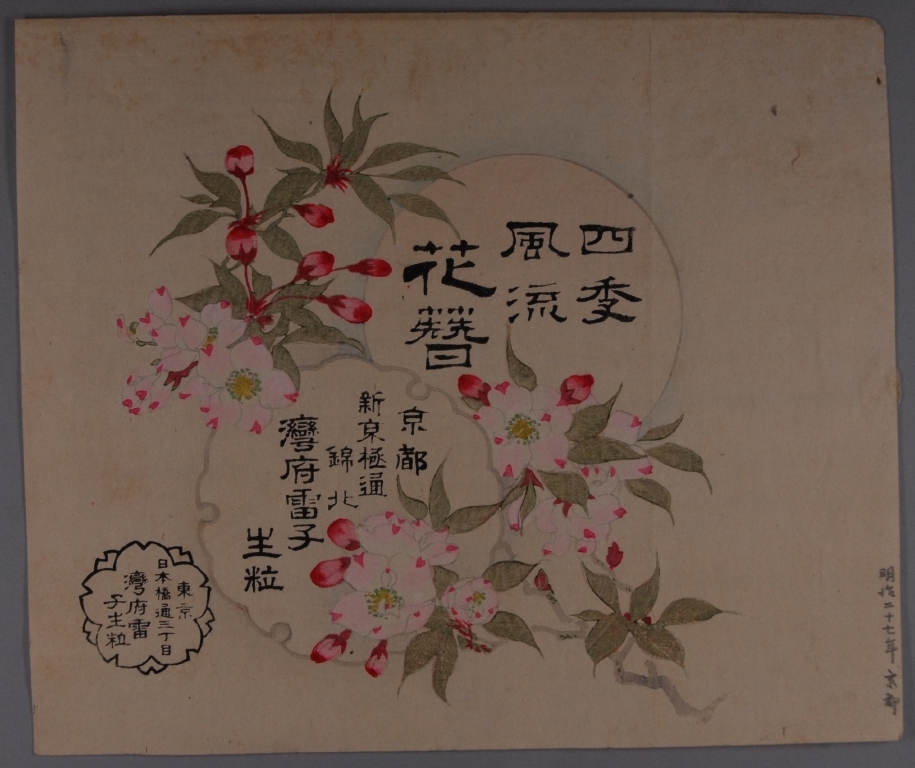 四季
風流
花簪
京都
新京極通
錦北
灣府雷子
生粒
東京
日本橋通三丁目
灣府雷
子生粒
明治二十七年 京都